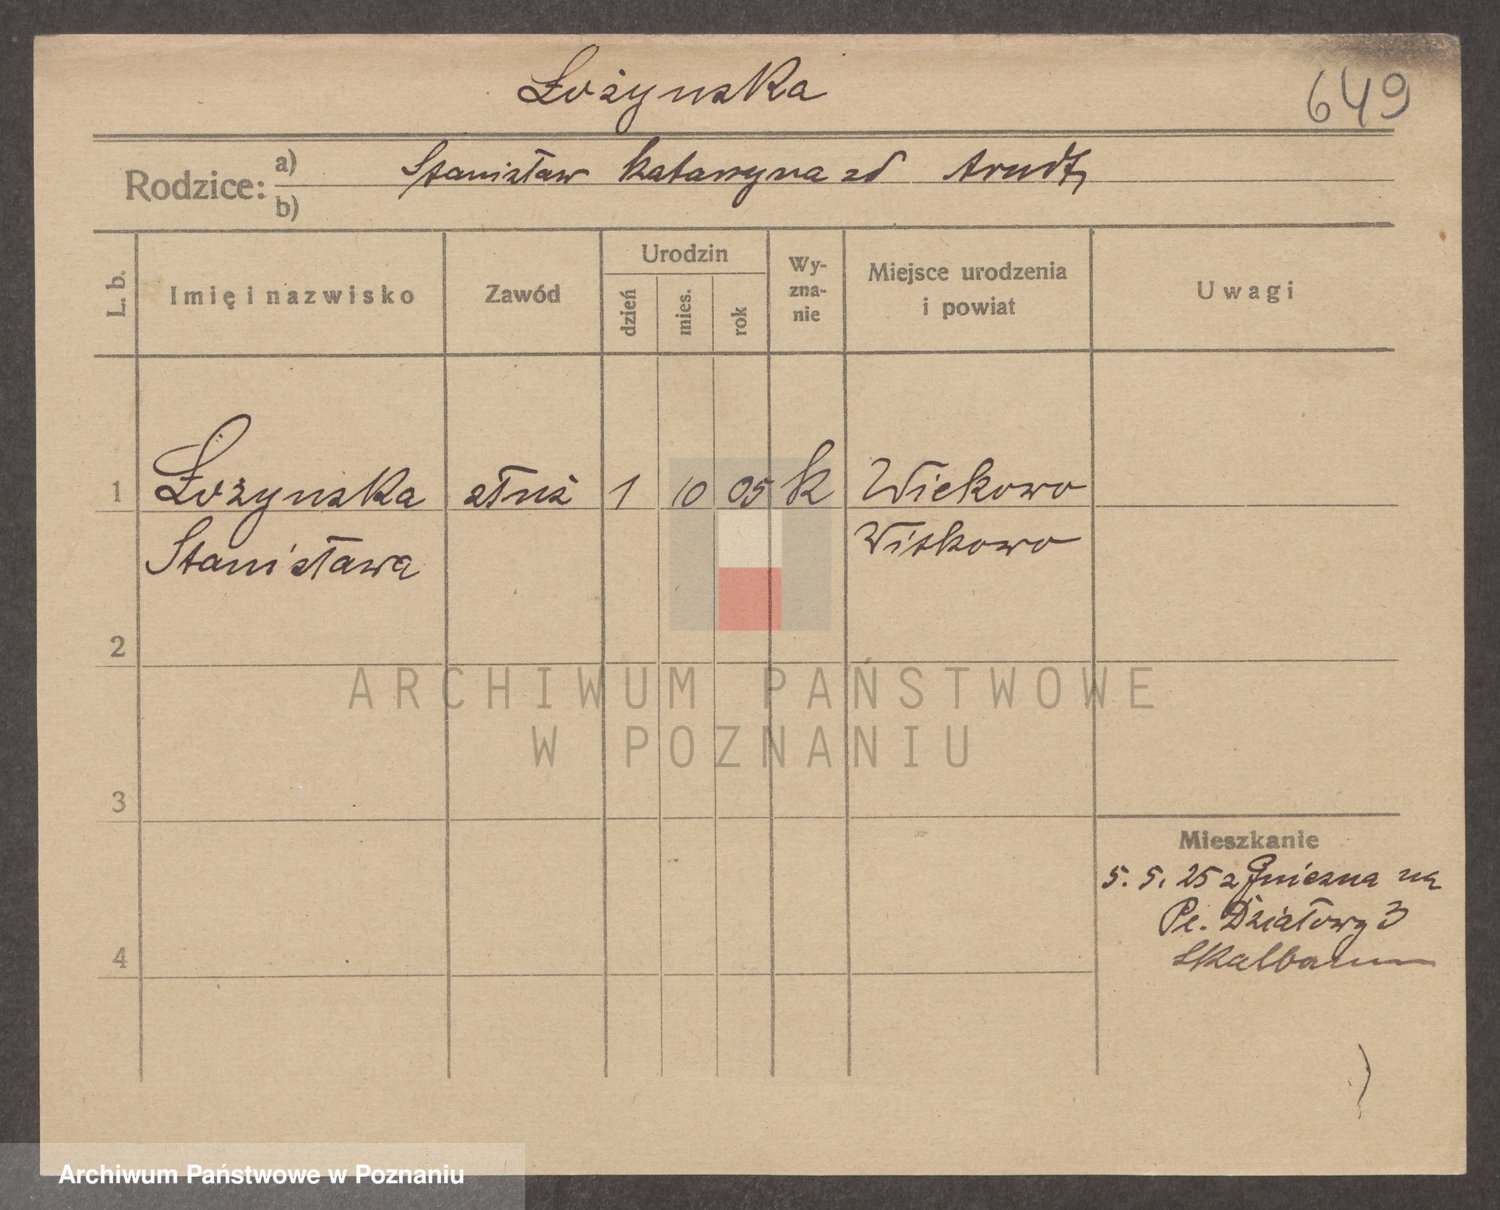 Łożynska
649
Rodzice: a) Stanisław Katarzyna zd Arndt
b)
L. b.
Imię i nazwisko
Zawód
Urodzin
dzień
mies.
rok
Wy-
zna-
nie
Miejsce urodzenia
i powiat
Uwagi
1 Łożynska służ 1 10 05 k Wiekowo
Stanisława Witkowo
2
ARCHIWUM PAŃSTWOWE
W POZNANIU
3
Mieszkanie
5. 5. 25 z Gniezna na
Pl. Działowy 3
4
Archiwum Państwowe w Poznaniu